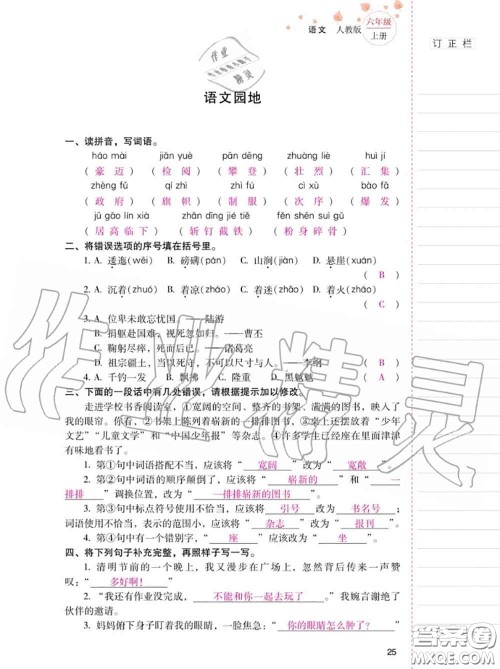 语文 人教版 六年级
上册
订正栏
语文园地
一、读拼音，写词语。
háo mài jiǎn yuè pān dēng zhuàng liè huì jí
（豪迈）（检阅）（攀登）（壮烈）（汇集）
zhèng fǔ qí zhì zhì fú cì xù bào fā
（政府）（旗帜）（制服）（次序）（爆发）
jū gāo lín xià zhǎn dīng jié tiě fěn shēn suì gǔ
（居高临下）（斩钉截铁）（粉身碎骨）
二、将错误选项的序号填在括号里。
1. A. 逶迤(wēi) B. 磅礴(pán) C. 山涧(jiàn) D. 悬崖(xuán)
（B）
2. A. 沉着(zhuó) B. 着凉(zháo) C. 着迷(zháo) D. 着火(zháo)
（B）
3. A. 位卑未敢忘忧国。——陆游
B. 捐躯赴国难，视死忽如归。——曹丕
C. 鞠躬尽瘁，死而后已。——诸葛亮
D. 祖宗疆土，当以死守，不可以尺寸与人。——李纲（B）
4. A. 千钧一发 B. 飘拂 C. 隆重 D. 黑魆魆（A）
三、下面的一段话中有几处错误，请根据提示加以修改。
走进学校书香阅读室，①宽阔的空间、整齐的书架、满满的图书，映
入我的眼帘。你看，②书架上陈列着崭新的一排排图书，③桌上还摆放着“少年
文艺”“儿童文学”和“中国少年报”等杂志。④许多学生已经座在里面津津
有味地看书了。
1. 第①句中词语搭配不当，应该将“宽阔”改为“宽敞”。
2. 第②句中词语的顺序颠倒了，应该将“崭新的”和“一
排排”调换位置，改为“一排排崭新的图书”。
3. 第③句中标点符号使用不恰当，应该将引号改为书名号；
词语使用不恰当，表示的范围小，应该将“杂志”改为“报刊”。
4. 第④句中有一个错别字，应该将“座”改为“坐”。
四、将下列句子补充完整，再照样子写一写。
1. 清明节前的一个晚上，我又漫步在广场上，忽然背后传来一声赞
叹：“多好啊！”
2. “我还有作业没完成，不能和你一起去玩了。”我婉言谢绝了
伙伴的邀请。
3. 妈妈俯下身子盯着我的眼睛，一脸焦急：“你的眼睛怎么肿了？”
25